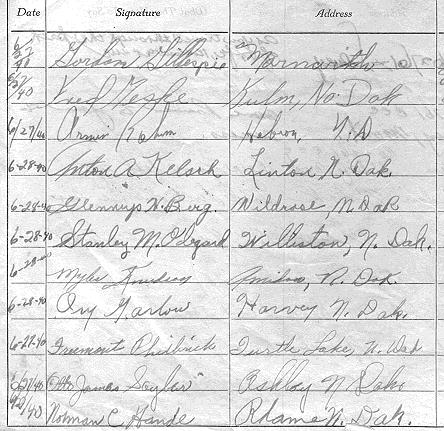 Date Signature Address
6/27/40 Gordon Gillespie Marmarth
6/27/40 Fred Geske Kulm, No. Dak
6/27/40 Armin Rohim Hebron, N.D
6-28-40 Anton A. Kelsch Linton N. Dak.
6-28-40 Glennys W. Berg. Wildrose, N Dak
6-28-40 Stanley M. Odegard Williston, N. Dak.
6-28-40 Myles Amidon, N. Dak.
6-28-40 Ory Garlow Harvey N. Dak.
6-27-40 Freemont Philbrick Turtle Lake, N. Dak
6/27/40 Otto James Sayler Ashley N. Dak.
6/28/40 Norman C Hande Rhame N. Dak.